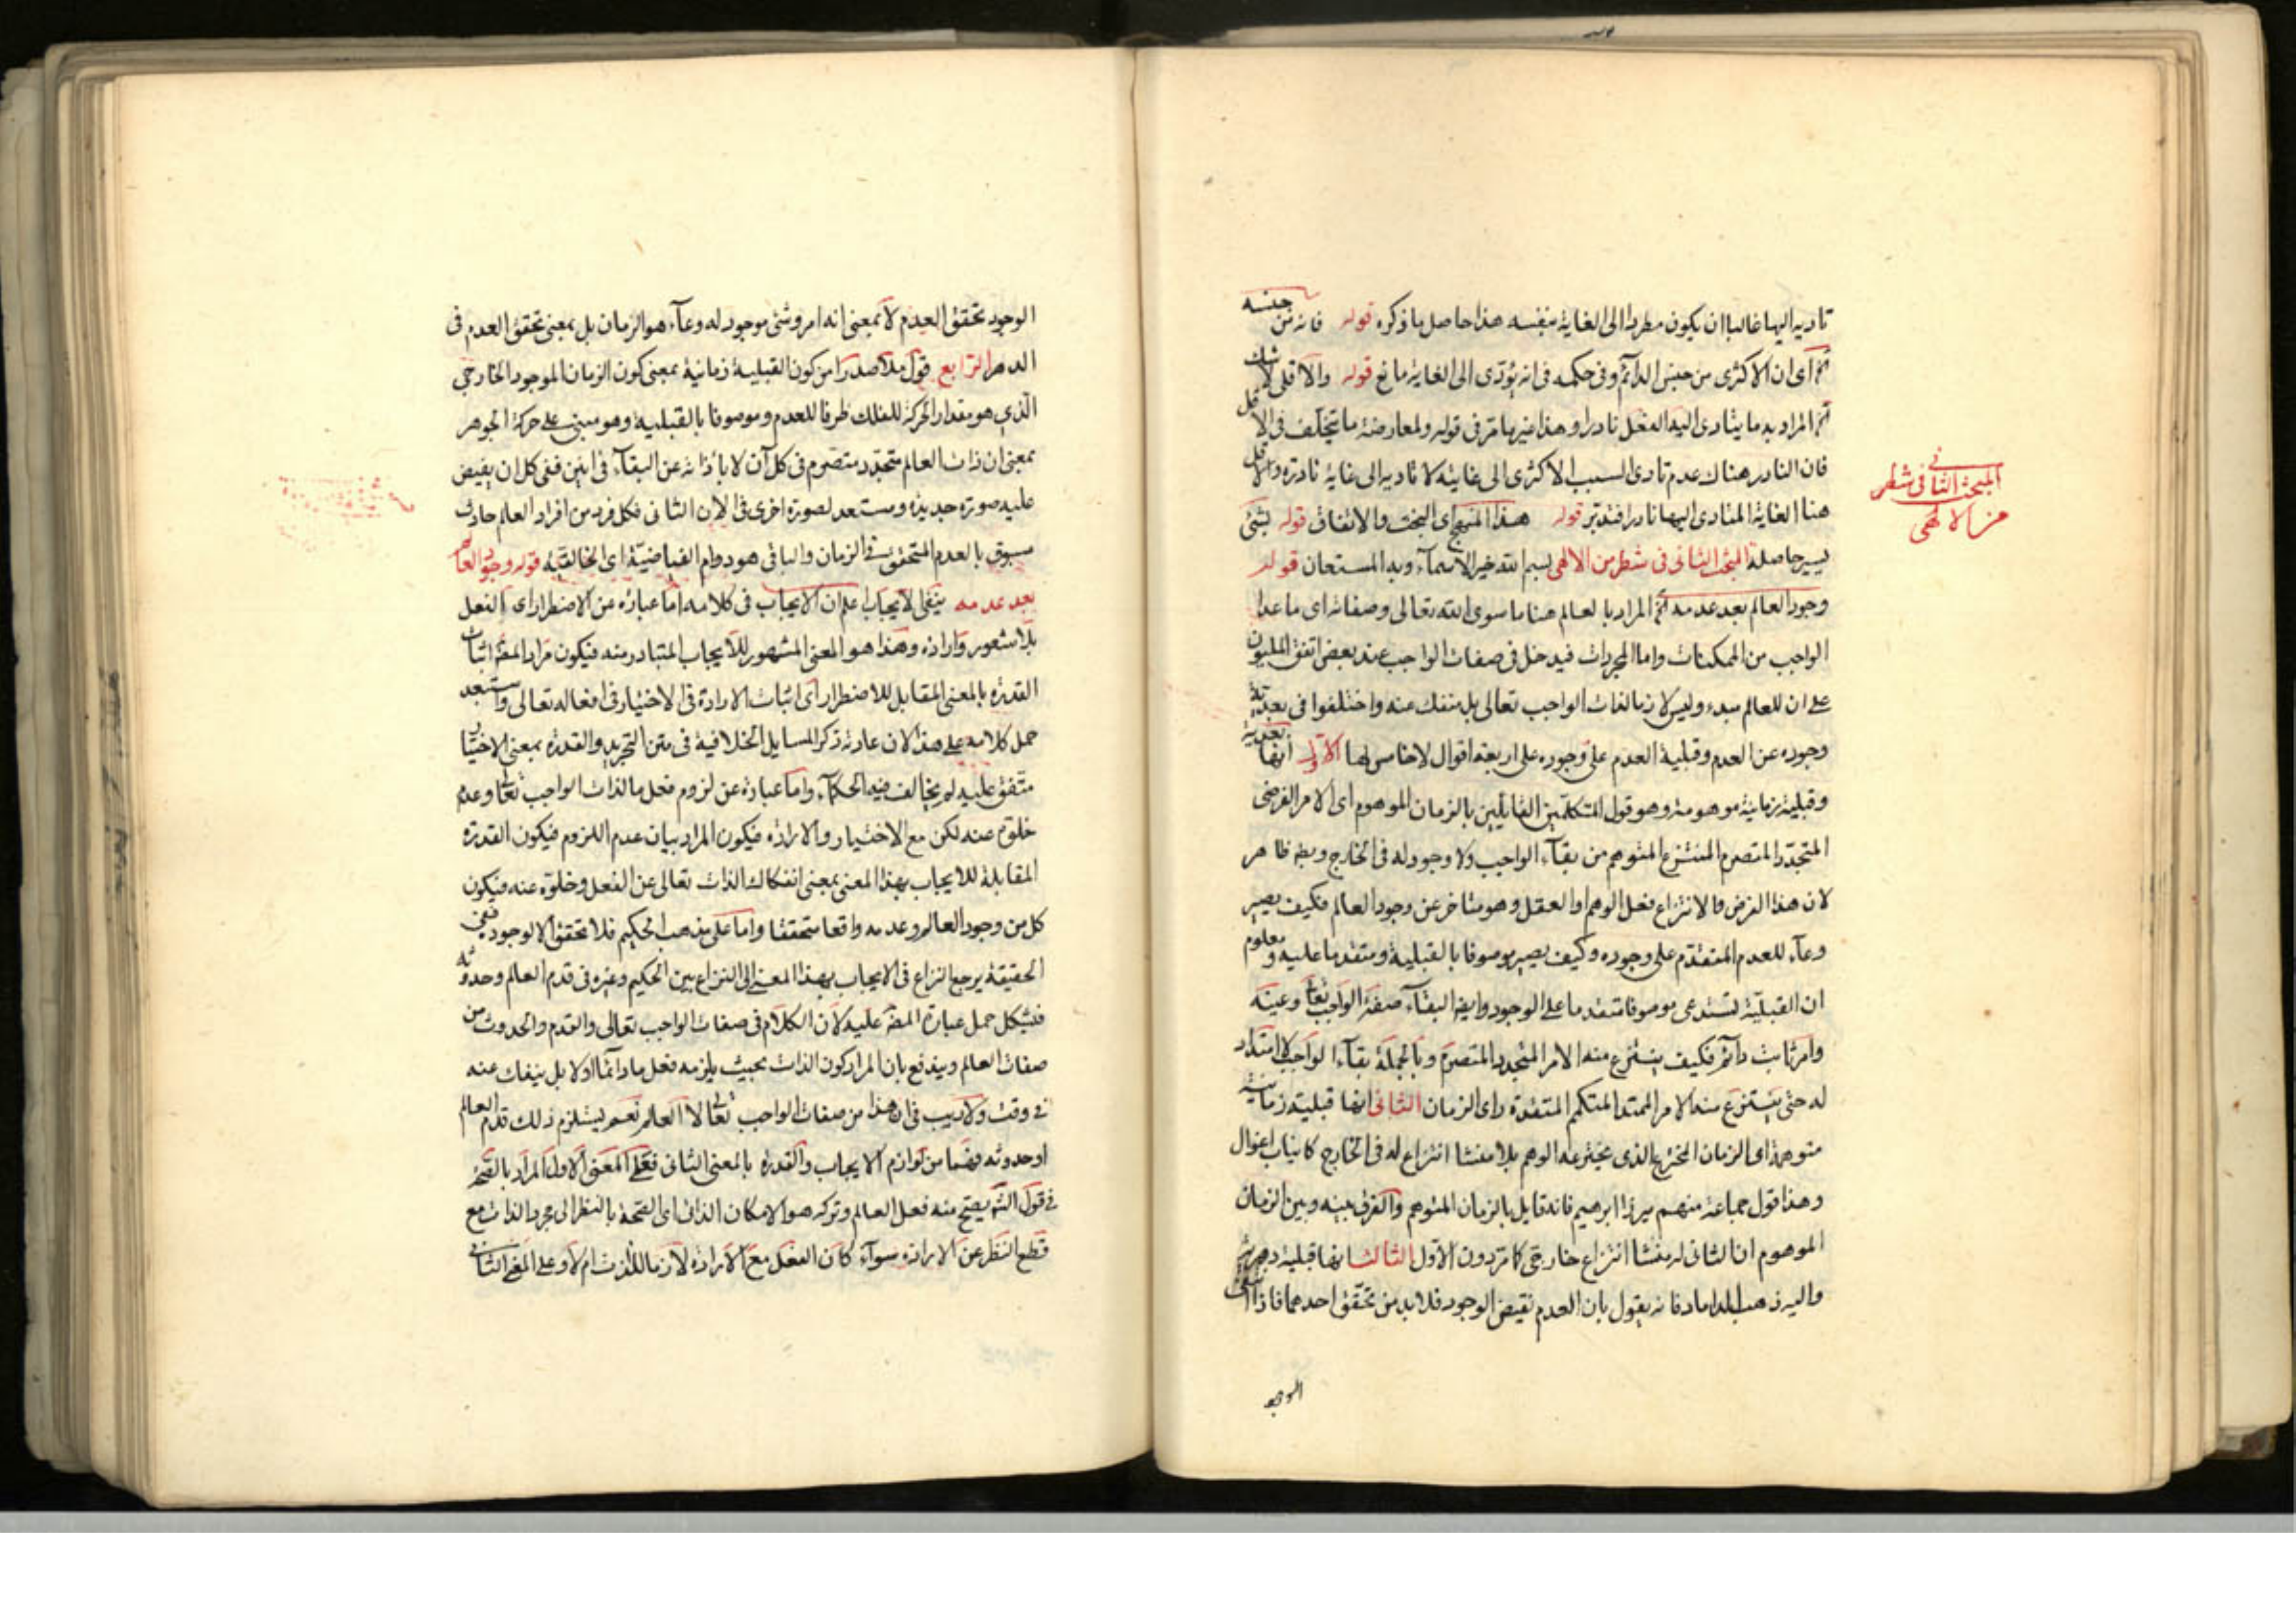 تاديه اليها غالبا ان يكون مطردا الى الغاية بنفسه هذا حاصل ما ذكره قوله فانه من جنسه
آه اى ان الاكثرى من جنس الدائم وفى حكمه فى انه يؤدى الى الغاية مانع قوله والاقلى لا شك
آه المراد به ما يتادى اليه الفعل نادرا وهذا غير ما مر فى قوله ولمعارضة ما يتخلف فى الاقل
فان النادر هناك عدم تادى السبب الاكثرى الى غايته لا تاديه الى غاية نادرة والاقل
هنا الغاية المتادى اليها نادرا فتدبر قوله هذا المنهج اى البخت والاتفاق قوله بشئ
يسير حاصلة المبحث الثانى فى شطر من الالهى بسم الله خير الاسماء وبه المستعان قوله
وجود العالم بعد عدمه آه المراد بالعالم هنا ما سوى الله تعالى وصفاته اى ما عدا
الواجب من الممكنات واما المجردات فيدخل فى صفات الواجب عند بعض اتفق المليون
على ان للعالم مبدء وليس لازما لذات الواجب تعالى بل منفك عنه واختلفوا فى بعدية
وجوده عن العدم وقبلية العدم على وجوده على اربعة اقوال لا خامس لها الاول انها بعدية
وقبلية زمانية موهومة وهو قول المتكلمين القايلين بالزمان الموهوم اى الامر الفرضى
المتجدد المتصرم المنتزع المتوهم من بقاء الواجب ولا وجود له فى الخارج وبطه ظاهر
لان هذا الفرض والانتزاع فعل الوهم او العقل وهو متاخر عن وجود العالم فكيف يصير
وعاء للعدم المتقدم على وجوده وكيف يصير موصوفا بالقبلية ومتقدما عليه ومعلوم
ان القبلية تستدعى موصوفا متقدما على الوجود وايضا البقاء صفة الواجب تعالى وعينه
وامر ثابت دائم فكيف ينتزع منه الامر المتجدد المتصرم وبالجملة بقاء الواجب لا امتداد
له حتى ينتزع منه الامر الممتد المتكمم المتقدر اى الزمان الثانى انها قبلية زمانية
متوهمة اى الزمان المخترع الذى يخترعه الوهم بلا منشا انتزاع له فى الخارج كانياب اغوال
وهذا قول جماعة منهم ميرزا ابرهيم فانه قايل بالزمان المتوهم والفرق بينه وبين الزمان
الموهوم ان الثانى له منشا انتزاع خارجى كما مر دون الاول الثالث انها قبلية دهرية
واليه ذهب الداماد فانه يقول بان العدم نقيض الوجود فلا بد من تحقق احدهما فاذا انتفى
الوجو
المبحث الثانى فى شطر
من الالهى
الوجود تحقق العدم لا بمعنى انه امر وشئ موجود له وعاء هو الزمان بل بمعنى تحقق العدم فى
الدهر الرابع قول ملا صدرا من كون القبلية زمانية بمعنى كون الزمان الموجود الخارجى
الذى هو مقدار الحركة للفلك ظرفا للعدم وموصوفا بالقبلية وهو مبنى على حركة الجوهر
بمعنى ان ذات العالم متجدد متصرم فى كل آن لا باذانه عن البقاء فى آنين ففى كل ان يفيض
عليه صورة جديدة ومستعد لصورة اخرى فى الان الثانى فكل فرد من افراد العالم حادث
مسبوق بالعدم المتحقق فى الزمان والباقى هو دوام الفياضية اى الخالقية قوله وجود العالم
بعد عدمه ينفى الايجاب اعلم ان الايجاب فى كلامه اما عبارة عن الاضطرار اى الفعل
بلا شعور وارادة وهذا هو المعنى المشهور للايجاب المتبادر منه فيكون مراد المصه اثبات
القدرة بالمعنى المقابل للاضطرار اى اثبات الارادة فى الاختيار فى افعاله تعالى واستبعد
حمل كلامه على هذا لان عادته ذكر المسايل الخلافية فى متن التجريد والقدرة بمعنى الاختيار
متفق عليه لم يخالف فيه الحكماء واما عبارة عن لزوم فعل ما لذات الواجب تعالى وعدم
خلوه عنه لكن مع الاختيار والارادة فيكون المراد بيان عدم اللزوم فيكون القدرة
المقابلة للايجاب بهذا المعنى بمعنى انفكاك الذات تعالى عن الفعل وخلوه عنه فيكون
كل من وجود العالم وعدمه واقعا متحققا واما على مذهب الحكيم فلا تحقق الا لوجود ففى
الحقيقة يرجع النزاع فى الايجاب بهذا المعنى الى النزاع بين الحكيم وغيره فى قدم العالم وحدوثه
فيشكل حمل عبارة المصه عليه لان الكلام فى صفات الواجب تعالى والقدم والحدوث من
صفات العالم ويندفع بان المراد كون الذات بحيث يلزمه فعل ما دائما اولا بل ينفك عنه
فى وقت ولا ريب فى ان هذا من صفات الواجب تعالى لا العالم نعم يستلزم ذلك قدم العالم
او حدوثه فهما من لوازم الايجاب والقدرة بالمعنى الثانى فعلى المعنى الاول المراد بالصحة
فى قول الشه يصح منه فعل العالم وتركه هو الامكان الذاتى اى الصحة بالنظر الى مجرد الذات مع
قطع النظر عن الارادة سواء كان الفعل مع الارادة لازما للذات ام لا وعلى المعنى الثانى